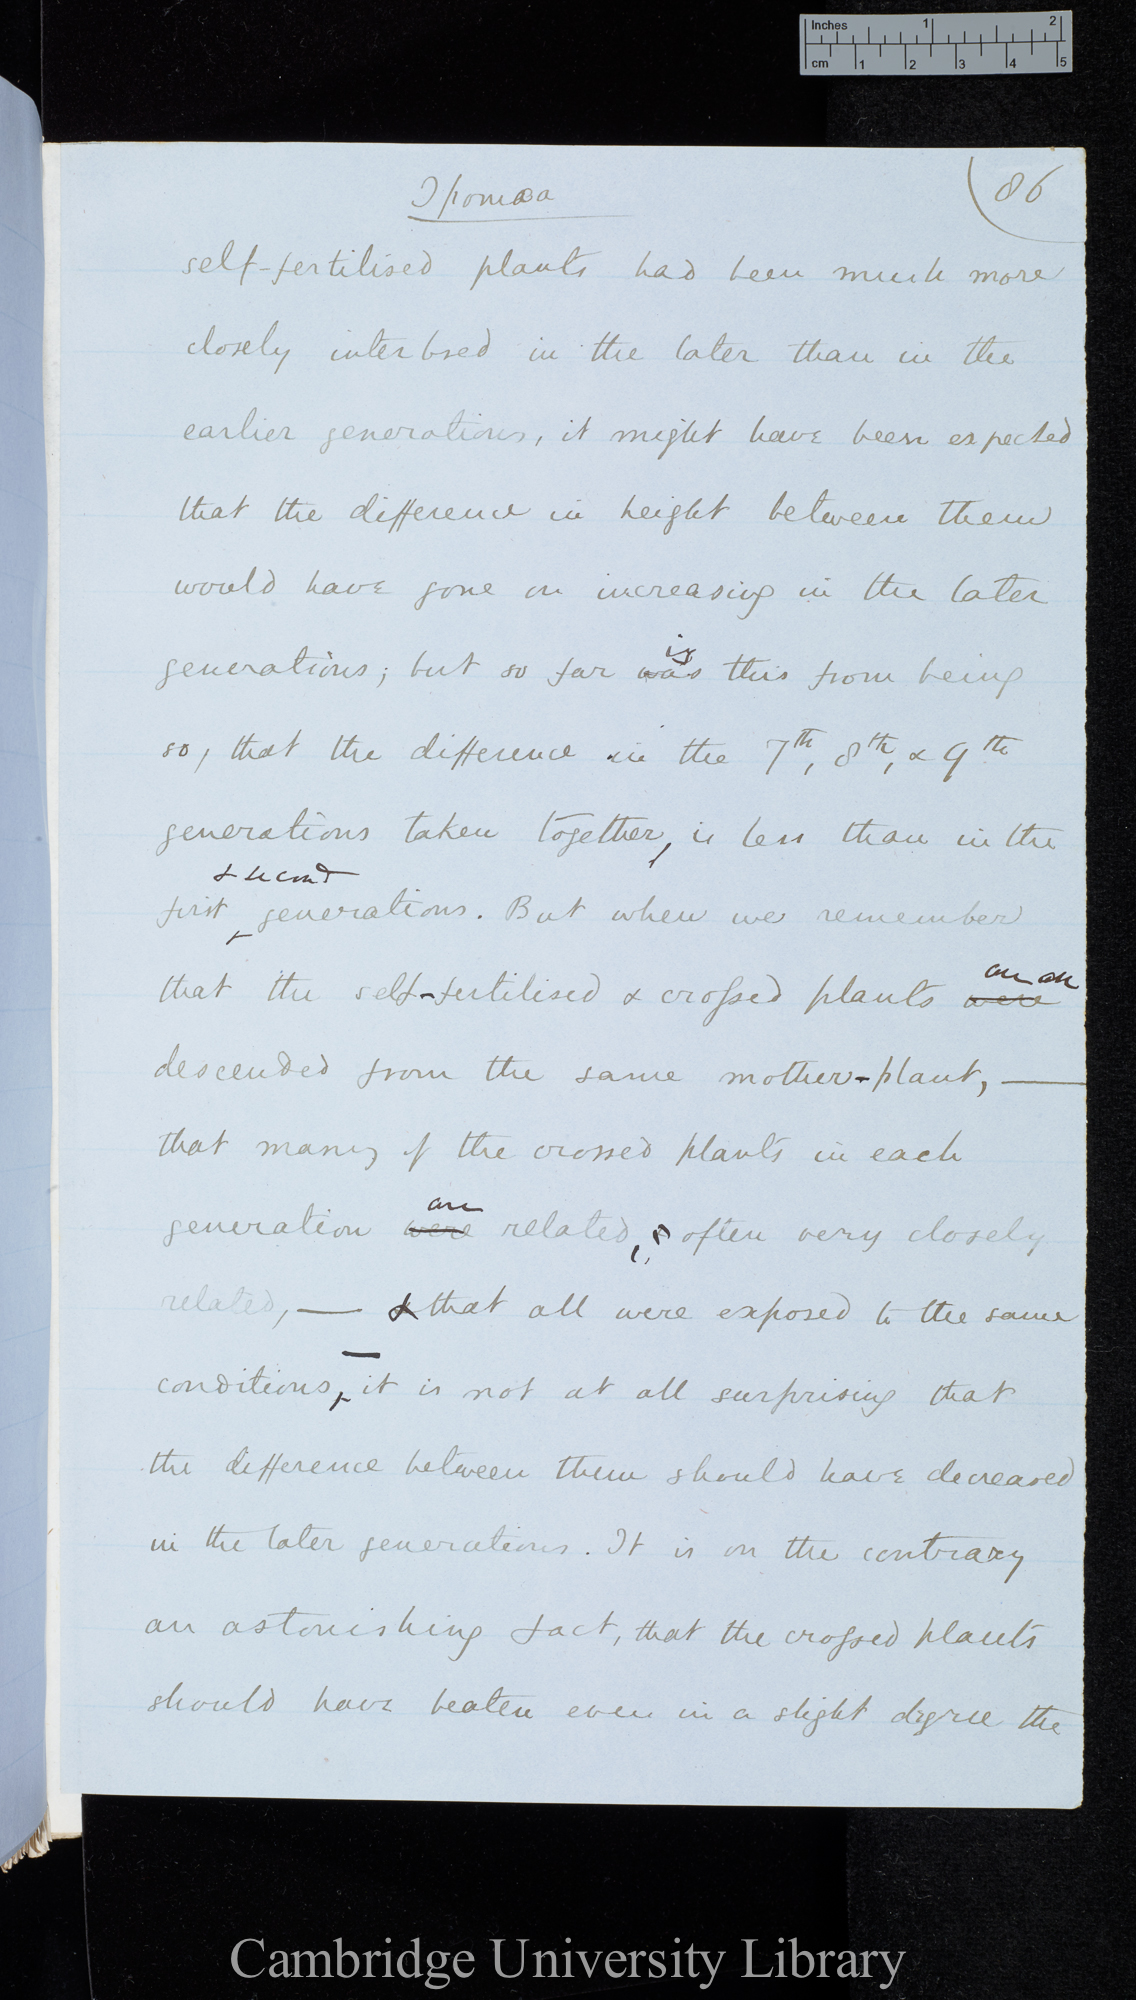 Inches 1 2
cm 1 2 3 4 5
Ipomœa
86
self-fertilised plants had been much more
closely interbred in the later than in the
earlier generations, it might have been expected
that the difference in height between them
would have gone on increasing in the later
is
generations; but so far was this from being
so, that the difference in the 7th, 8th, & 9th
generations taken together, is less than in the
& second
first generations. But when we remember
are all
that the self-fertilised & crossed plants were
descended from the same mother-plant, —
that many of the crossed plants in each
are
generation were related, & often very closely
related, — & that all were exposed to the same
—
conditions, it is not at all surprising that
the difference between them should have decreased
in the later generations. It is on the contrary
an astonishing fact, that the crossed plants
should have beaten even in a slight degree the
Cambridge University Library